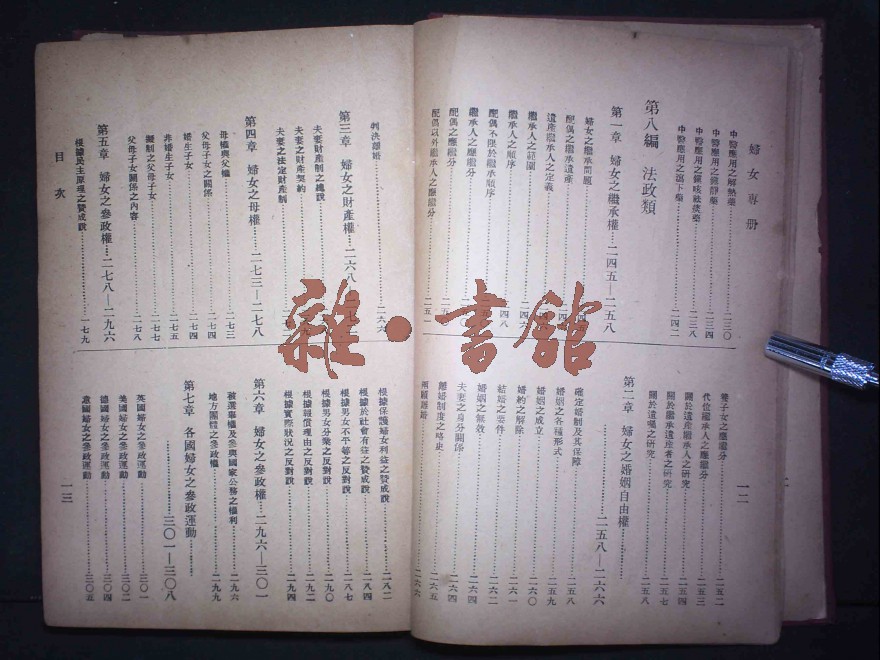 婦女專册
中醫應用之解熱藥……二三〇
中醫應用之鎮咳祛痰藥……二三四
中醫應用之鎮靜藥……二三四
中醫應用之瀉下藥……二四二
第八編 法政類
第一章 婦女之繼承權…二四五—二五八
婦女之繼承問題
配偶之繼承遺產
遺產繼承人之定義
繼承人之範圍
繼承人之順序
配偶不限於繼承順序
繼承人之應繼分
配偶之應繼分
配偶以外繼承人之應繼分……二五一
養子女之應繼分……二五二
代位繼承人之應繼分……二五三
關於遺產繼承人之研究……二五四
關於繼承遺產者之研究……二五七
關於遺囑之研究……二五八
第二章 婦女之婚姻自由權
……二五八—二六六
確定婚制及其保障……二五八
婚姻之各種形式……二五九
婚姻之成立……二六〇
婚約之解除……二六一
結婚之要件……二六二
婚姻之無效……二六四
夫妻之身分關係……二六四
離婚制度之略史……二六五
兩願離婚……二六六
一二
判決離婚……二六六
第三章 婦女之財產權…二六八
夫妻財產制之總說
夫妻之財產契約
夫妻之法定財產制
第四章 婦女之母權…二七三—二七八
母權與父權……二七三
父母子女之關係……二七四
婚生子女……二七四
非婚生子女……二七五
擬制之父母子女……二七七
父母子女關係之內容……二七八
第五章 婦女之參政權…二七八—二九六
根據民主原理之贊成說……二七九
目次
根據保護婦女利益之贊成說……二八二
根據於社會有益之贊成說……二八四
根據男女不平等之反對說……二八七
根據男女分業之反對說……二九〇
根據報償理由之反對說……二九二
根據實際狀況之反對說……二九四
第六章 婦女之參政權…二九六—三〇一
被選舉權及參與國家公務之權利……二九六
地方團體之參政權……二九九
第七章 各國婦女之參政運動
……三〇一—三〇八
英國婦女之參政運動……三〇一
美國婦女之參政運動……三〇二
德國婦女之參政運動……三〇四
意國婦女之參政運動……三〇五
一三
雜·書館